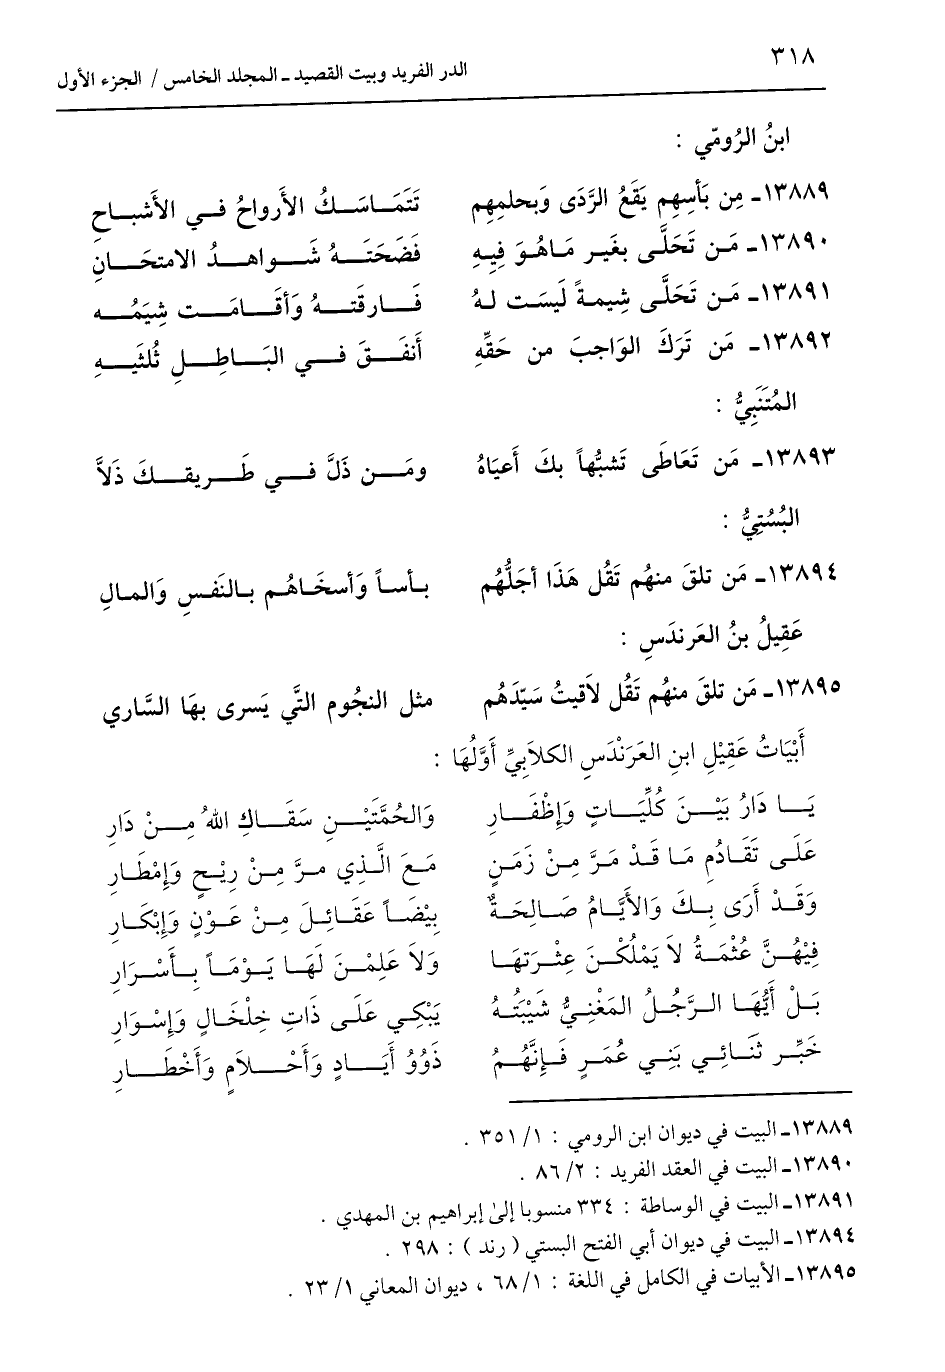 ٣١٨
الدر الفريد وبيت القصيد ـ المجلد الخامس / الجزء الأول
ابنُ الرُّوميّ :
١٣٨٨٩ـ مِن بَأسِهِم يَقَعُ الرَّدَى وَبحلمِهِم تَتَمَاسَكُ الأَرواحُ في الأَشباحِ
١٣٨٩٠ـ مَن تَحَلَّى بغَيرِ مَاهُوَ فِيهِ فَضَحَتَهُ شَواهدُ الامتحَانِ
١٣٨٩١ـ مَن تَحَلَّى شِيمةً لَيسَت لهُ فَارقتهُ وَأقَامَت شِيَمُه
١٣٨٩٢ـ مَن تَرَكَ الوَاجبَ من حَقِّهِ أَنفَقَ في البَاطِلِ ثُلثَيهِ
المُتَنَبِيُّ :
١٣٨٩٣ـ مَن تَعَاطَى تَشبُّهاً بكَ أَعيَاهُ ومَن ذَلَّ في طَريقكَ ذَلاَّ
البُستِيُّ :
١٣٨٩٤ـ مَن تلقَ منهُم تَقُل هَذَا أجَلُّهُم بأساً وَأسخَاهُم بالنَفسِ وَالمالِ
عَقِيلُ بنُ العَرندَسِ :
١٣٨٩٥ـ مَن تلقَ منهُم تَقُل لاَقيتُ سَيّدَهُم مثل النجُوم التَّي يَسرى بهَا السَّاري
أَبْيَاتُ عَقِيْلِ ابنِ العَرَنْدَسِ الكلاَبِيِّ أَوَّلُهَا :
يَا دَارُ بَيْنَ كُلِّيَاتٍ وَإِظْفَارِ وَالحُمَّتَيْنِ سَقَاكِ اللهُ مِنْ دَارِ
عَلَى تَقَادُمِ مَا قَدْ مَرَّ مِنْ زَمَنٍ مَعَ الَّذِي مرَّ مِنْ رِيْحٍ وَإِمْطَارِ
وَقَدْ أَرَى بِكَ وَالأَيَّامُ صَالِحَةٌ بِيْضَاً عَقَائِلَ مِنْ عَوْنٍ وَإِبْكَارِ
فِيْهُنَّ عُثْمَةُ لاَ يَمْلُكْنَ عِثْرَتهَا وَلاَ عَلِمْنَ لَهَا يَوْمَاً بِأَسْرَارِ
بَلْ أَيُّهَا الرَّجُلُ المَغْنِيُّ شَيْبَتُهُ يَبْكِي عَلَى ذَاتِ خِلْخَالٍ وَإِسْوَارِ
خَبِّر ثَنَائِي بَنِي عُمَرٍ فَإِنَّهُمُ ذَوُوُ أَيَادٍ وَأَحْلاَمٍ وَأَخْطَارِ
١٣٨٨٩ـ البيت في ديوان ابن الرومي : ١/ ٣٥١ .
١٣٨٩٠ـ البيت في العقد الفريد : ٢/ ٨٦ .
١٣٨٩١ـ البيت في الوساطة : ٣٣٤ منسوبا إلى إبراهيم بن المهدي .
١٣٨٩٤ـ البيت في ديوان أبي الفتح البستي ( رند ) : ٢٩٨ .
١٣٨٩٥ـ الأبيات في الكامل في اللغة : ١/ ٦٨ ، ديوان المعاني ١/ ٢٣ .